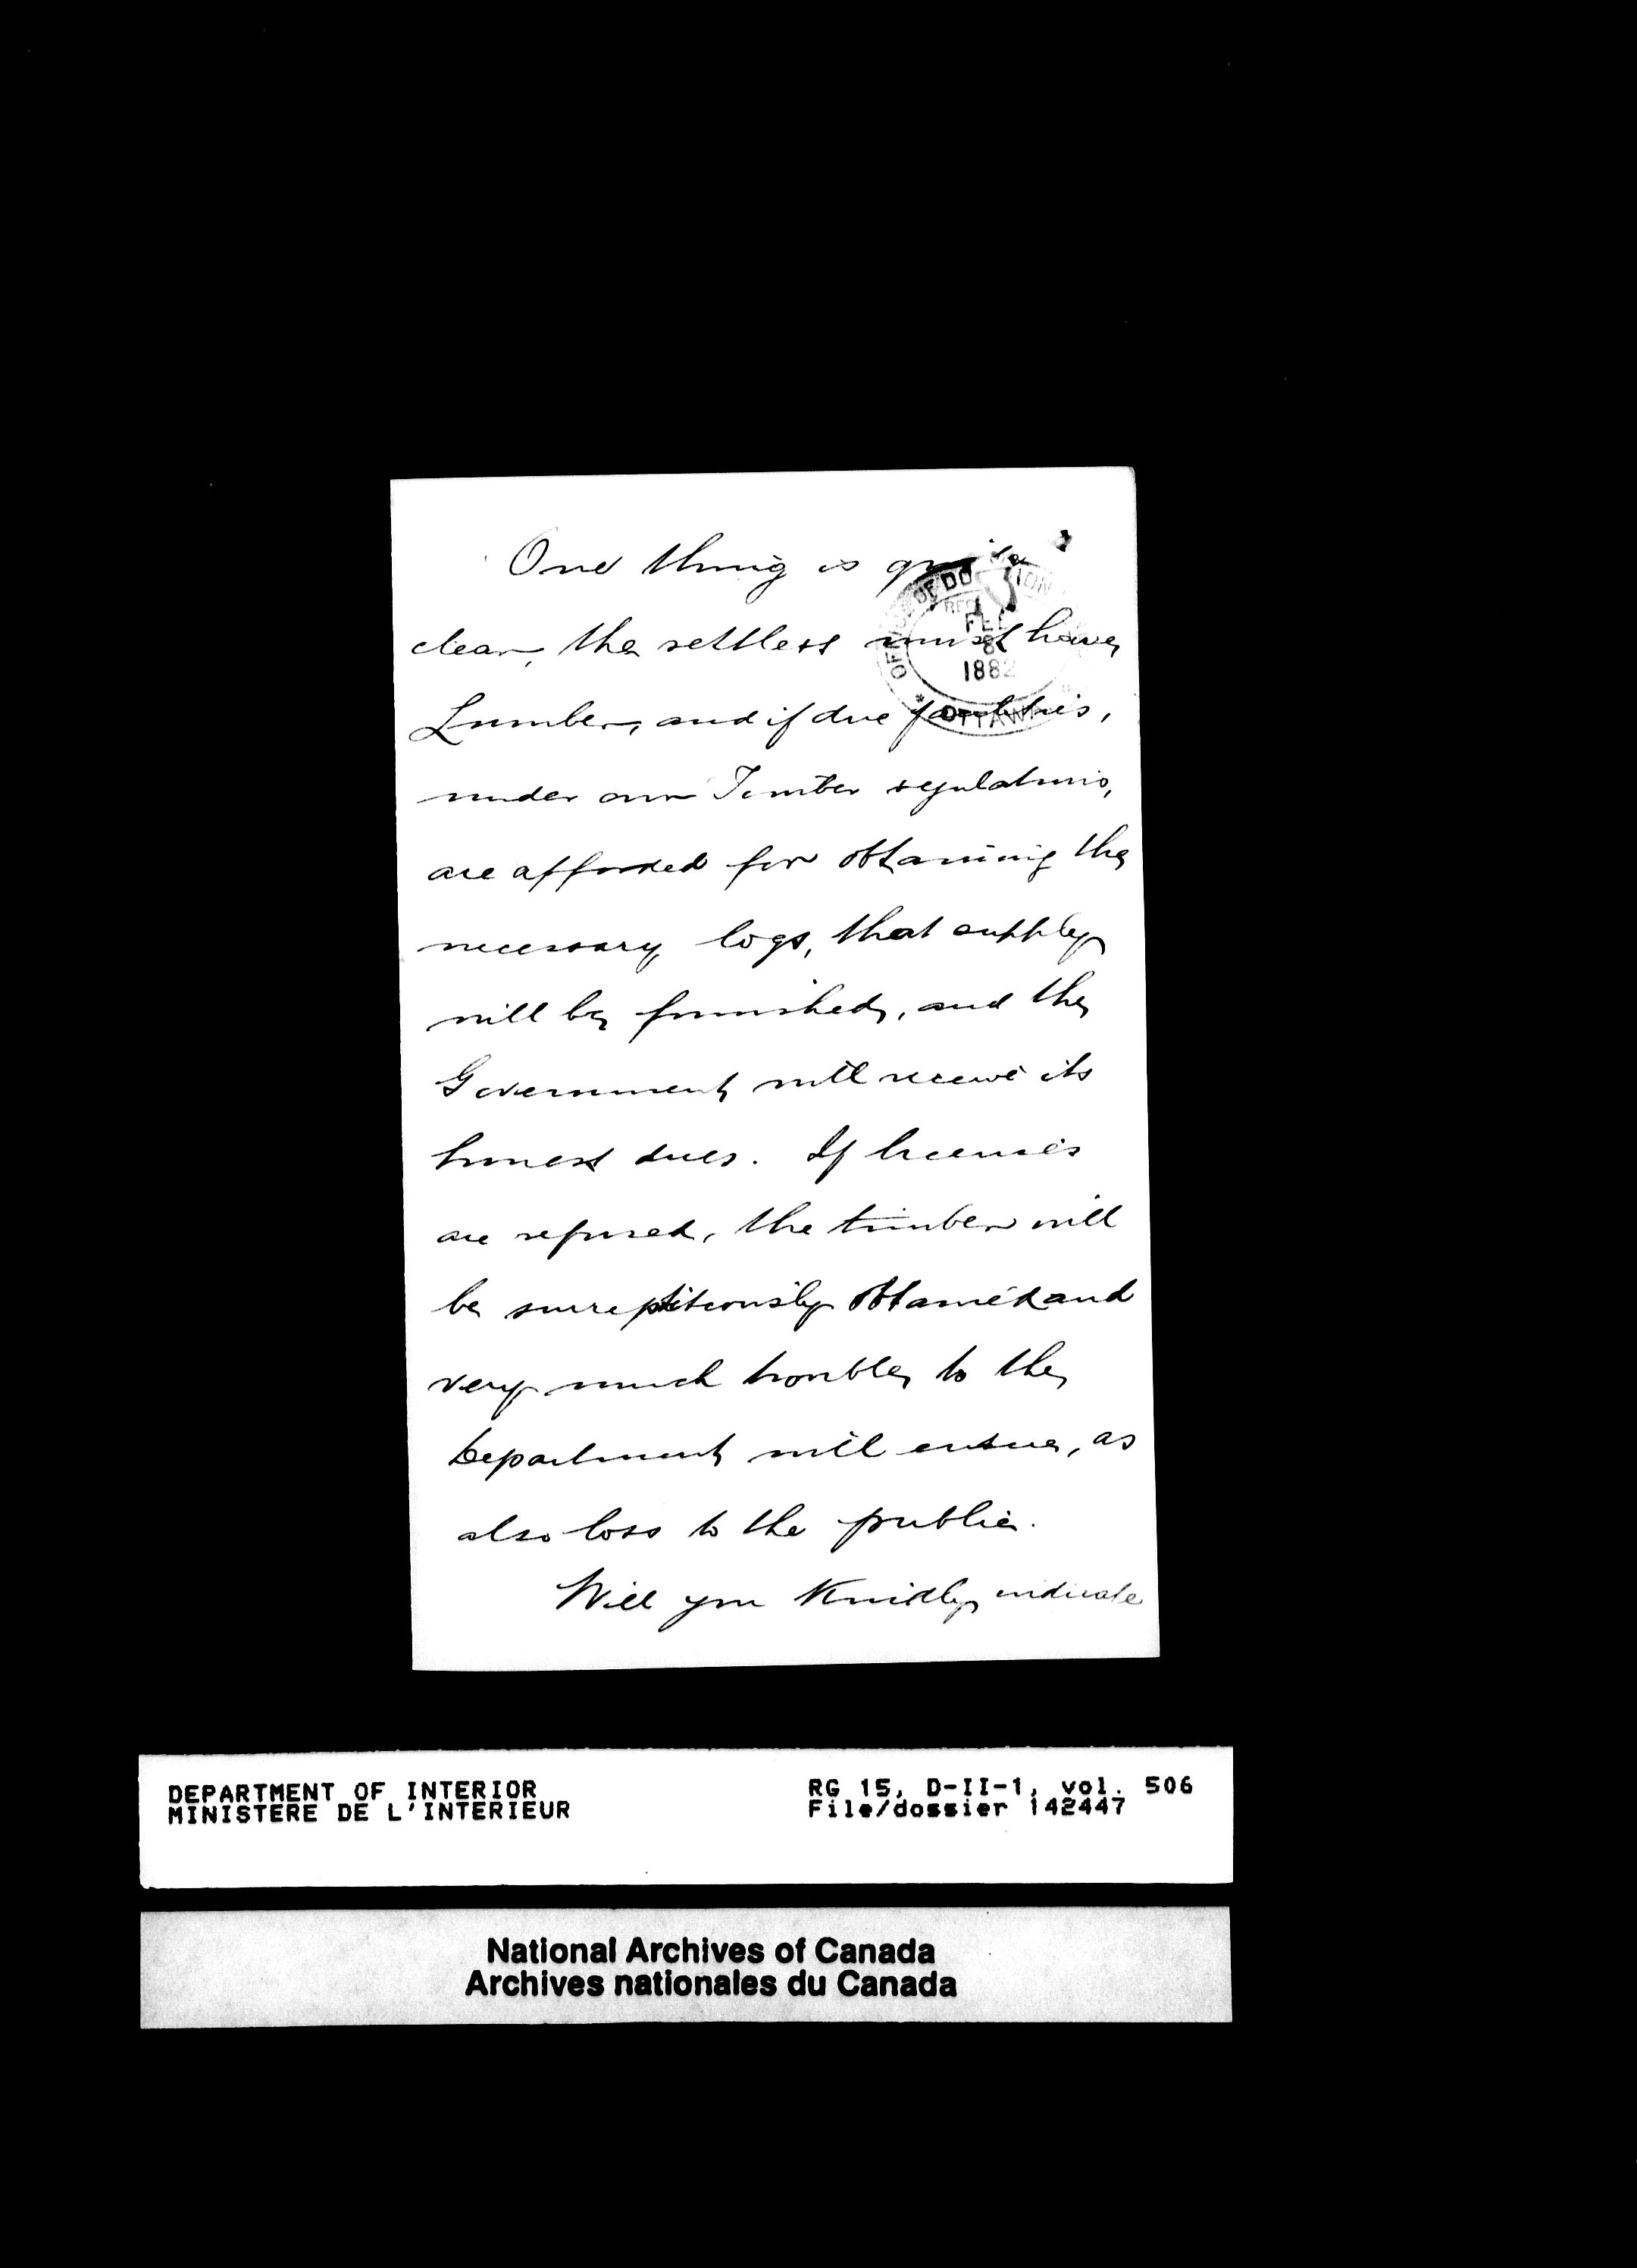 One thing is quite
clear, the settlers must have
Lumber, and if due facilities,
under our Timber regulations,
are afforded for obtaining the
necessary logs, that supply
will be furnished, and the
Government will receive its
honest dues. If licenses
are refused, the timber will
be surreptitiously obtained and
very much trouble to the
Department will ensue, as
also loss to the public.
Will you Kindly indicate
OF DO ION
REC
FEB
8
1882
* OTTAWA *
DEPARTMENT OF INTERIOR
MINISTERE DE L'INTERIEUR
RG 15, D-II-1, vol. 506
File/dossier 142447
National Archives of Canada
Archives nationales du Canada